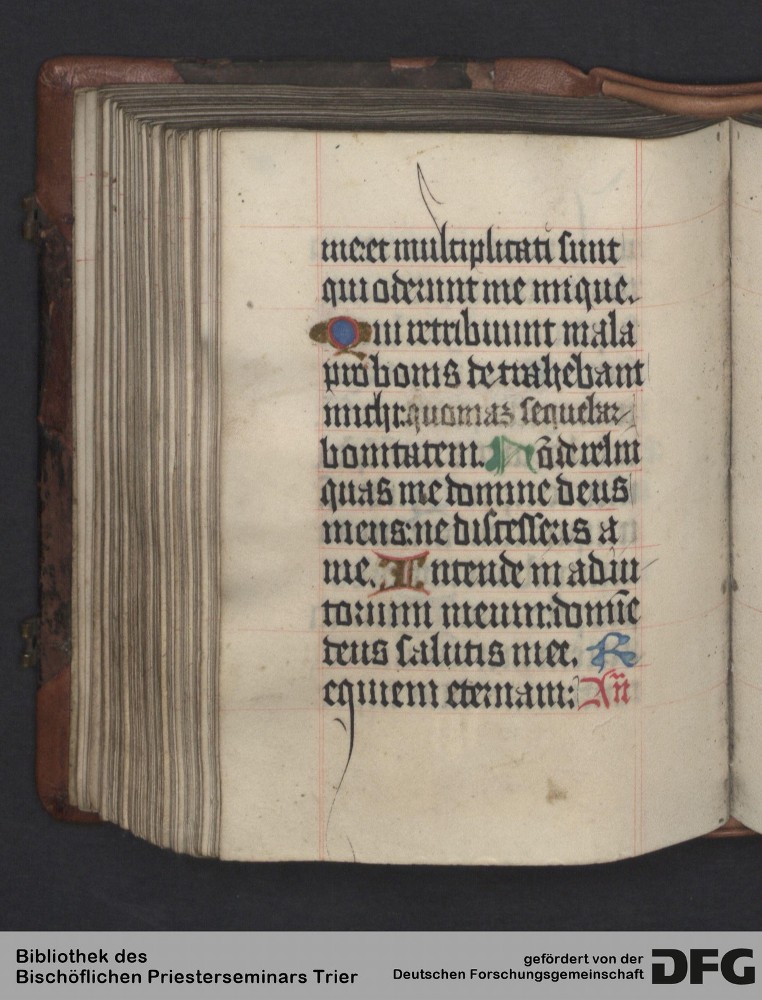 me:et multiplicati sunt
qui oderunt me inique.
Qui retribuunt mala
pro bonis detrahebant
michi:quoniam sequebar
bonitatem. Nō derelin
quas me domine deus
meus:ne discesseris a
me. Intende in adiu
torium meum:domīe
deus salutis mee. R
equiem eternam: An̄
Bibliothek des
Bischöflichen Priesterseminars Trier
gefördert von der
Deutschen Forschungsgemeinschaft
DFG